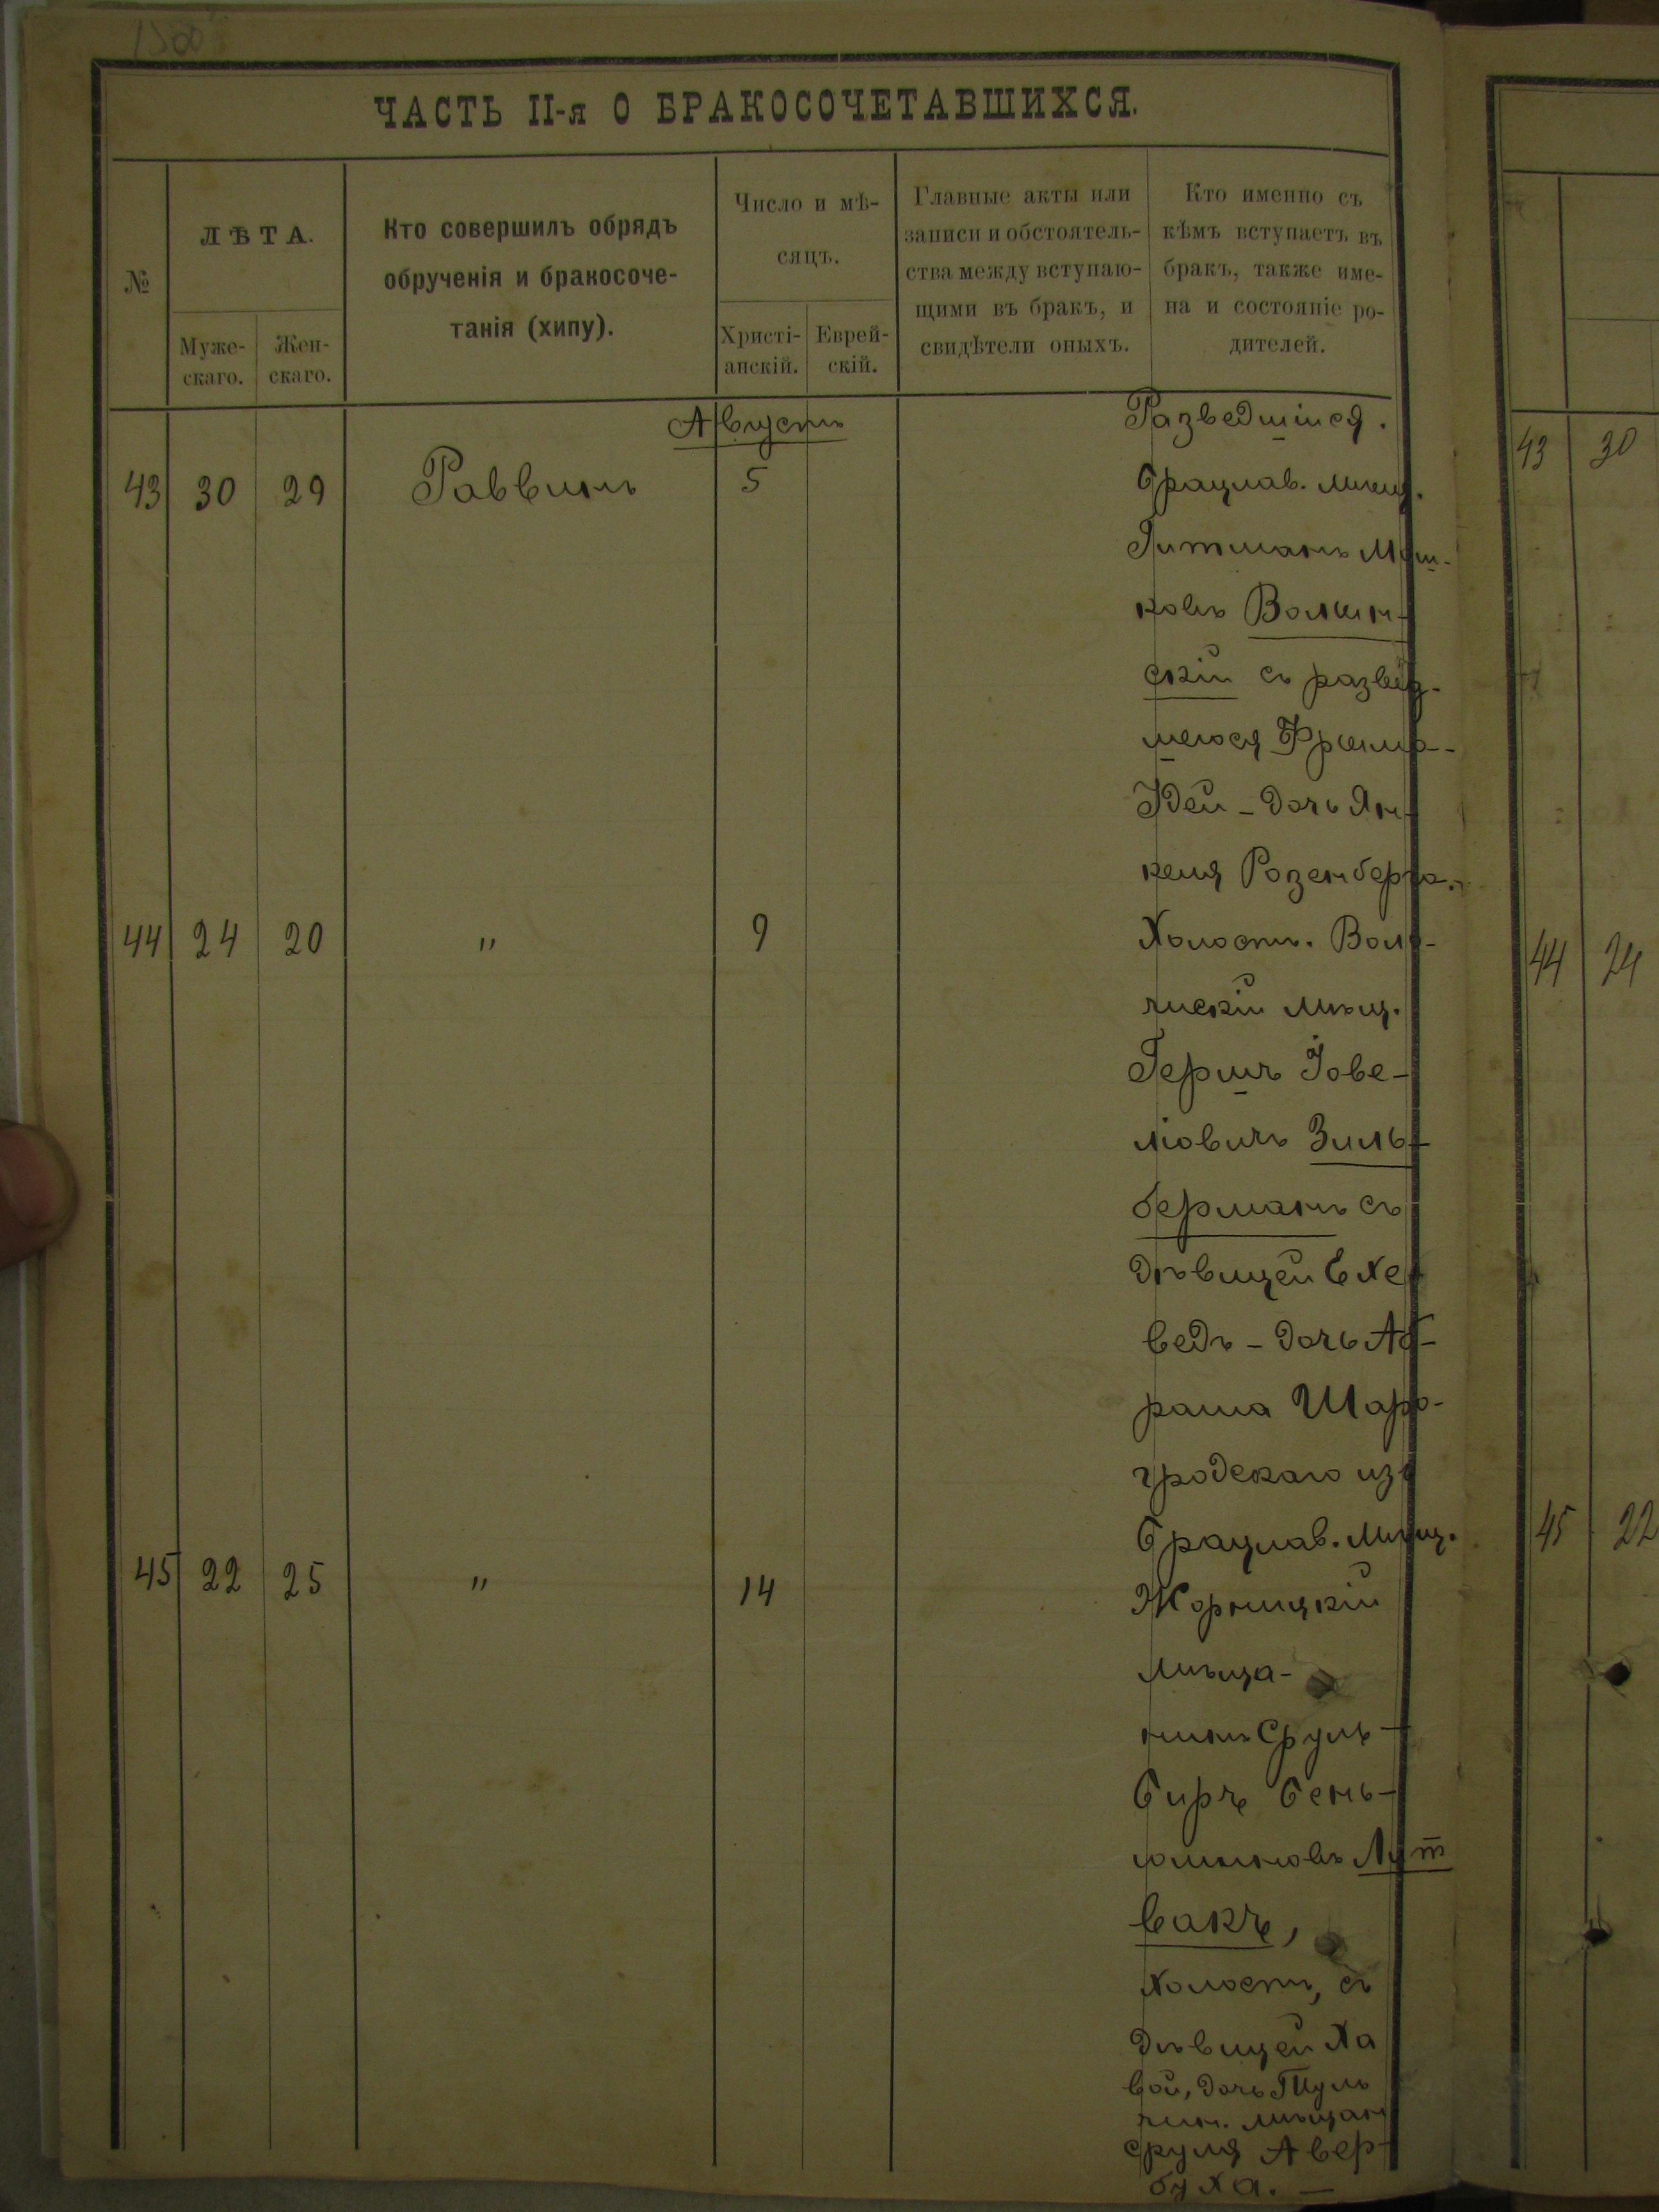 1500
ЧАСТЬ II-я О БРАКОСОЧЕТАВШИХСЯ.
№
ЛѢТА.
Муже-
скаго.
Жен-
скаго.
Кто совершилъ обрядъ
обрученія и бракосоче-
танія (хипу).
Число и мѣ-
сяцъ.
Христі-
анскій.
Еврей-
скій.
Главные акты или
записи и обстоятель-
ства между вступаю-
щими въ бракъ, и
свидѣтели оныхъ.
Кто именно съ
кѣмъ вступаетъ въ
бракъ, также име-
на и состояніе ро-
дителей.
Августъ
43 30 29 Раввинъ 5
Разведшійся.
Брацлав. мѣщ.
Гитманъ Мош-
ковъ Волин-
скій съ развед-
шеюся Фрима-
Идей - дочь Ян-
келя Розенберга.
44 24 20 " 9
Холост. Воло-
чискій мѣщ.
Гершъ Іове-
ліовичъ Зиль-
берманъ съ
дѣвицей Ехе-
ведъ - дочь Аб-
рама Шаро-
гродскаго изъ
Брацлав. мѣщ.
45 22 25 " 14
Жорницкій
мѣща-
нинъ Сруль-
Биръ Бень-
юминовъ Лит
вакъ,
холостъ, съ
дѣвицей Ха
вой, дочь Туль
чин. мѣщан
Сруля Авер-
буха. —
43 30
44 24
45 22